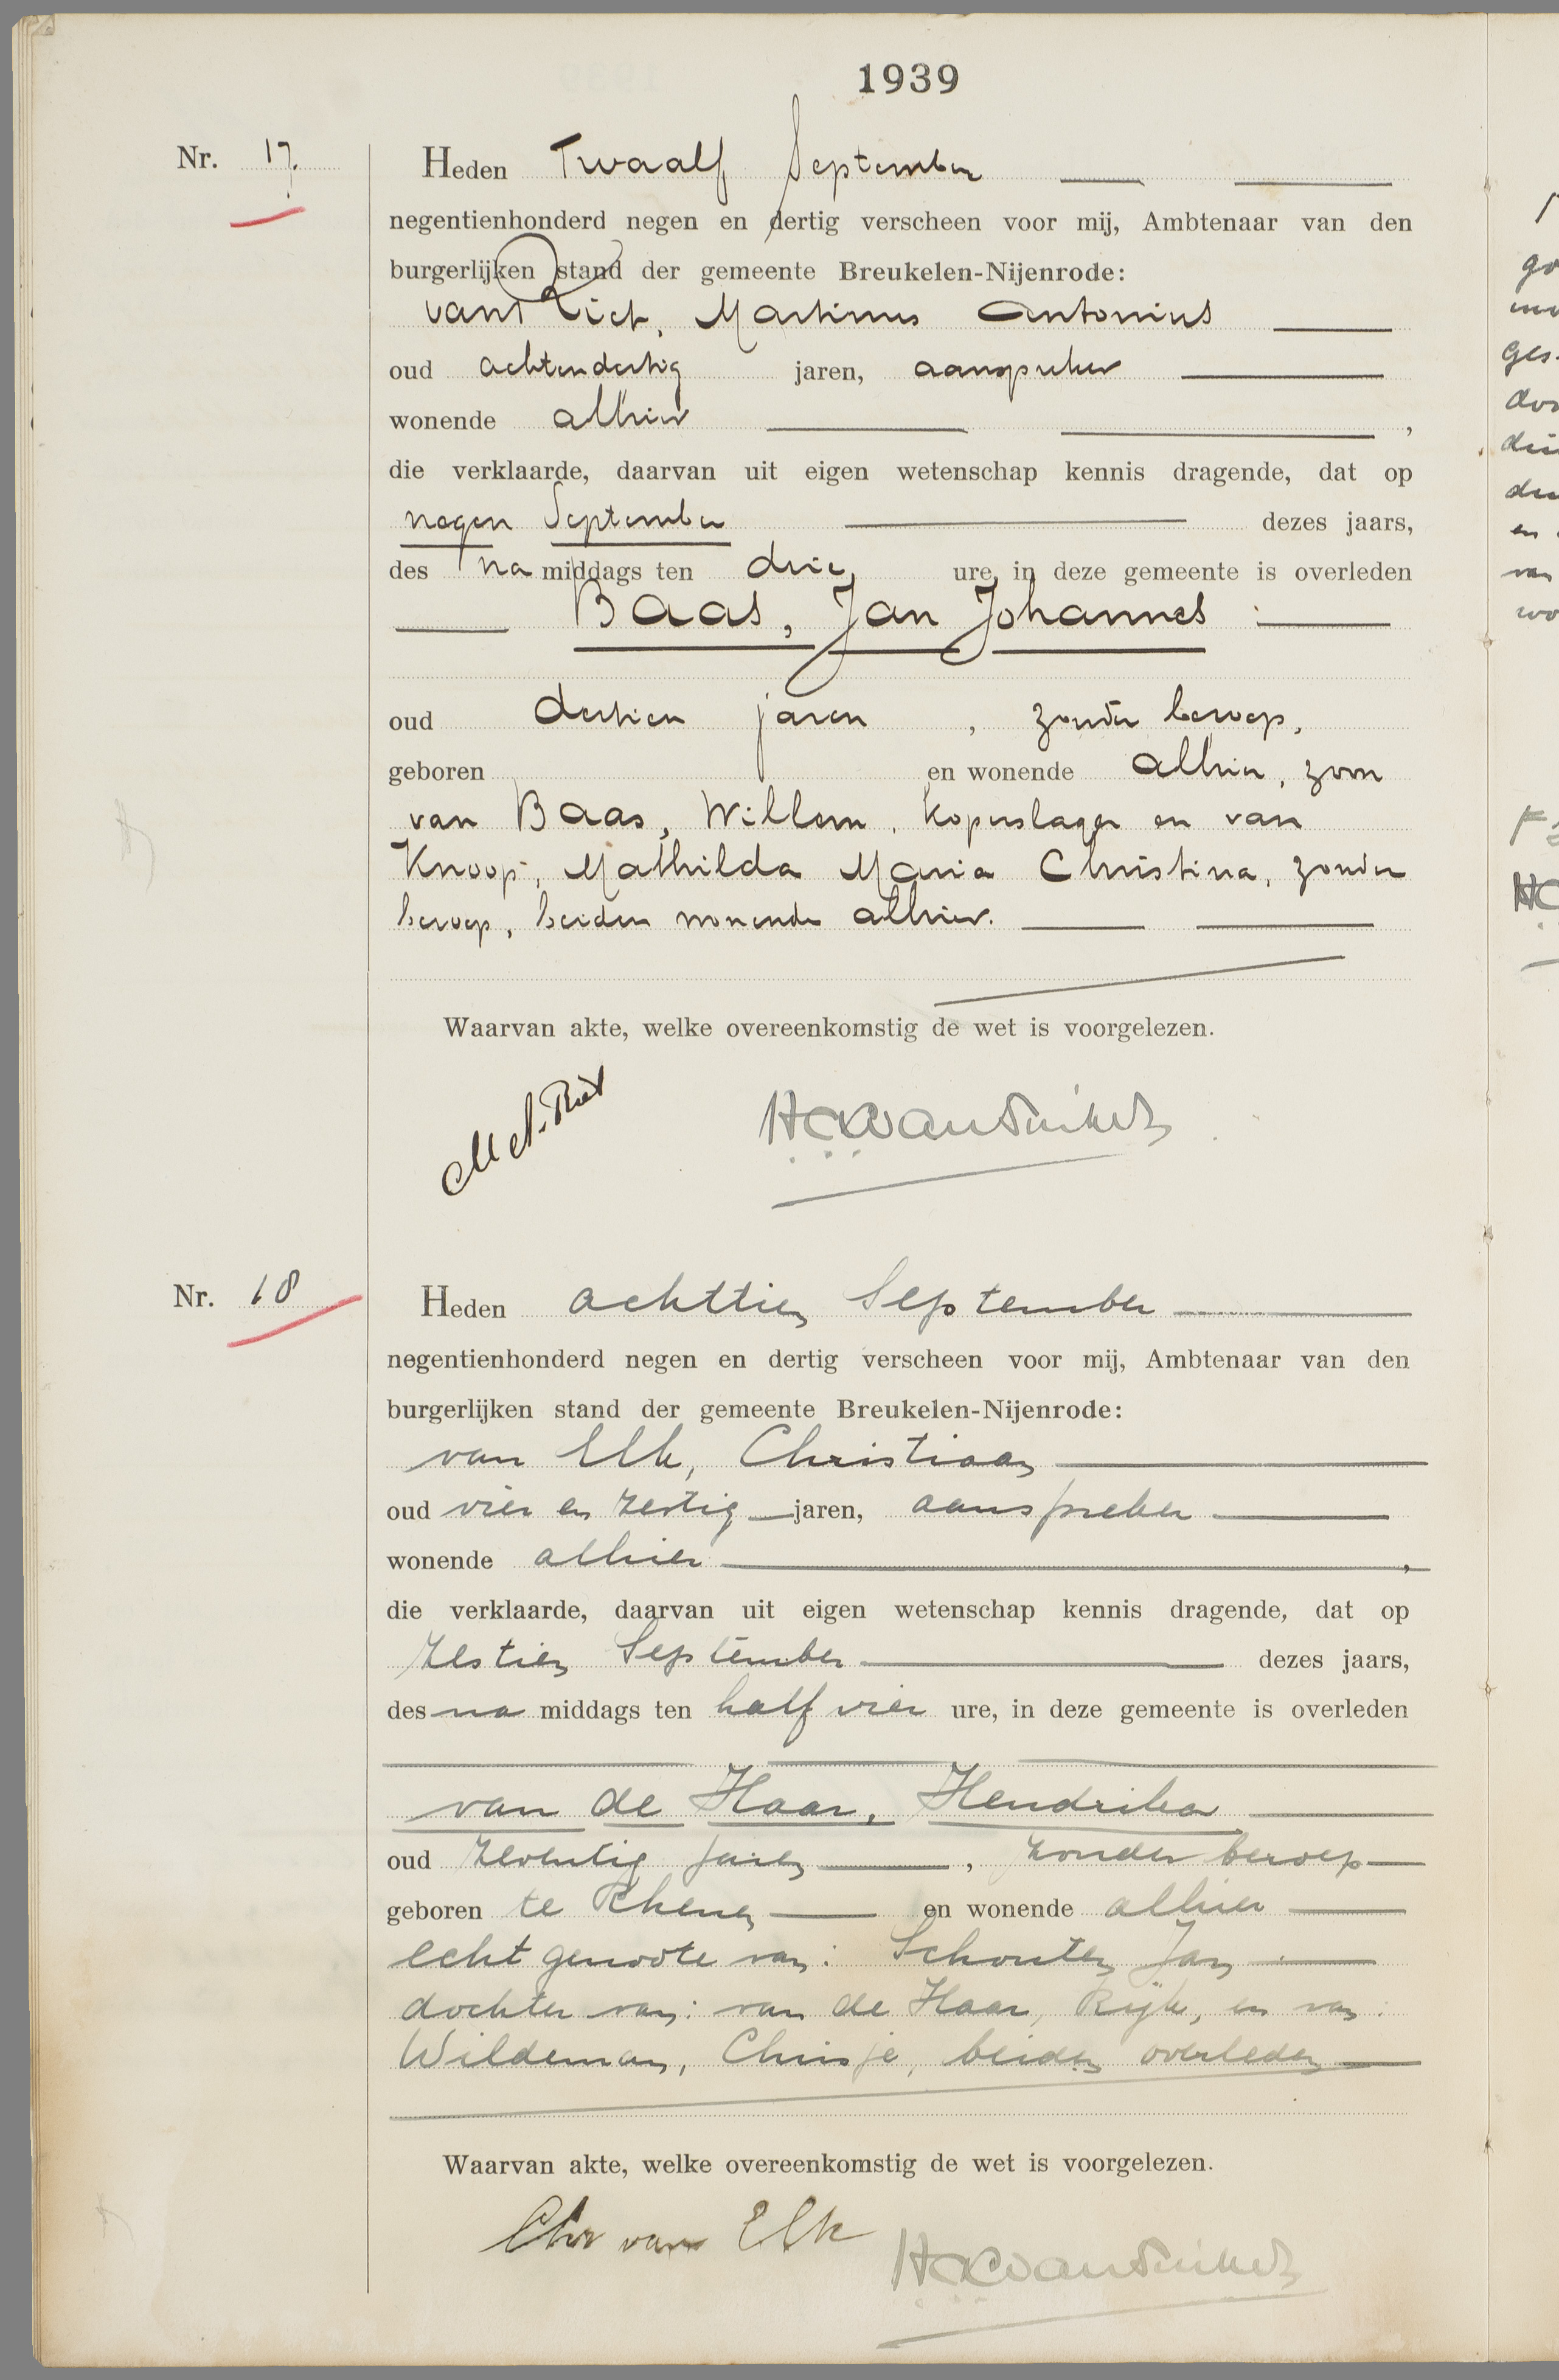 1939
Nr. 17.
Heden Twaalf September
negentienhonderd negen en dertig verscheen voor mij, Ambtenaar van den
burgerlijken stand der gemeente Breukelen-Nijenrode:
van Riet, Martinus Antonius
oud achtendertig jaren, aanspreker
wonende alhier ,
die verklaarde, daarvan uit eigen wetenschap kennis dragende, dat op
negen September dezes jaars,
des na middags ten drie ure, in deze gemeente is overleden
Baas, Jan Johannes
oud dertien jaren , zonder beroep,
geboren en wonende alhier, zoon
van Baas, Willem, koperslager en van
Knoop, Mathilda Maria Christina, zonder
beroep, beiden wonende alhier.
Waarvan akte, welke overeenkomstig de wet is voorgelezen.
M.A. v. Riet
Nr. 18
Heden achttien September
negentienhonderd negen en dertig verscheen voor mij, Ambtenaar van den
burgerlijken stand der gemeente Breukelen-Nijenrode:
van Elk, Christiaan
oud vier en zestig jaren, aanspreker
wonende alhier ,
die verklaarde, daarvan uit eigen wetenschap kennis dragende, dat op
zestien September dezes jaars,
des na middags ten half vier ure, in deze gemeente is overleden
van de Haar, Hendrika
oud zeventig jaren , zonder beroep
geboren te Rhenen en wonende alhier
echtgenoote van: Schouten Jan
dochter van: van de Haar, Rijk, en van:
Wildeman, Chrisje, beiden overleden
Waarvan akte, welke overeenkomstig de wet is voorgelezen.
Chr van Elk